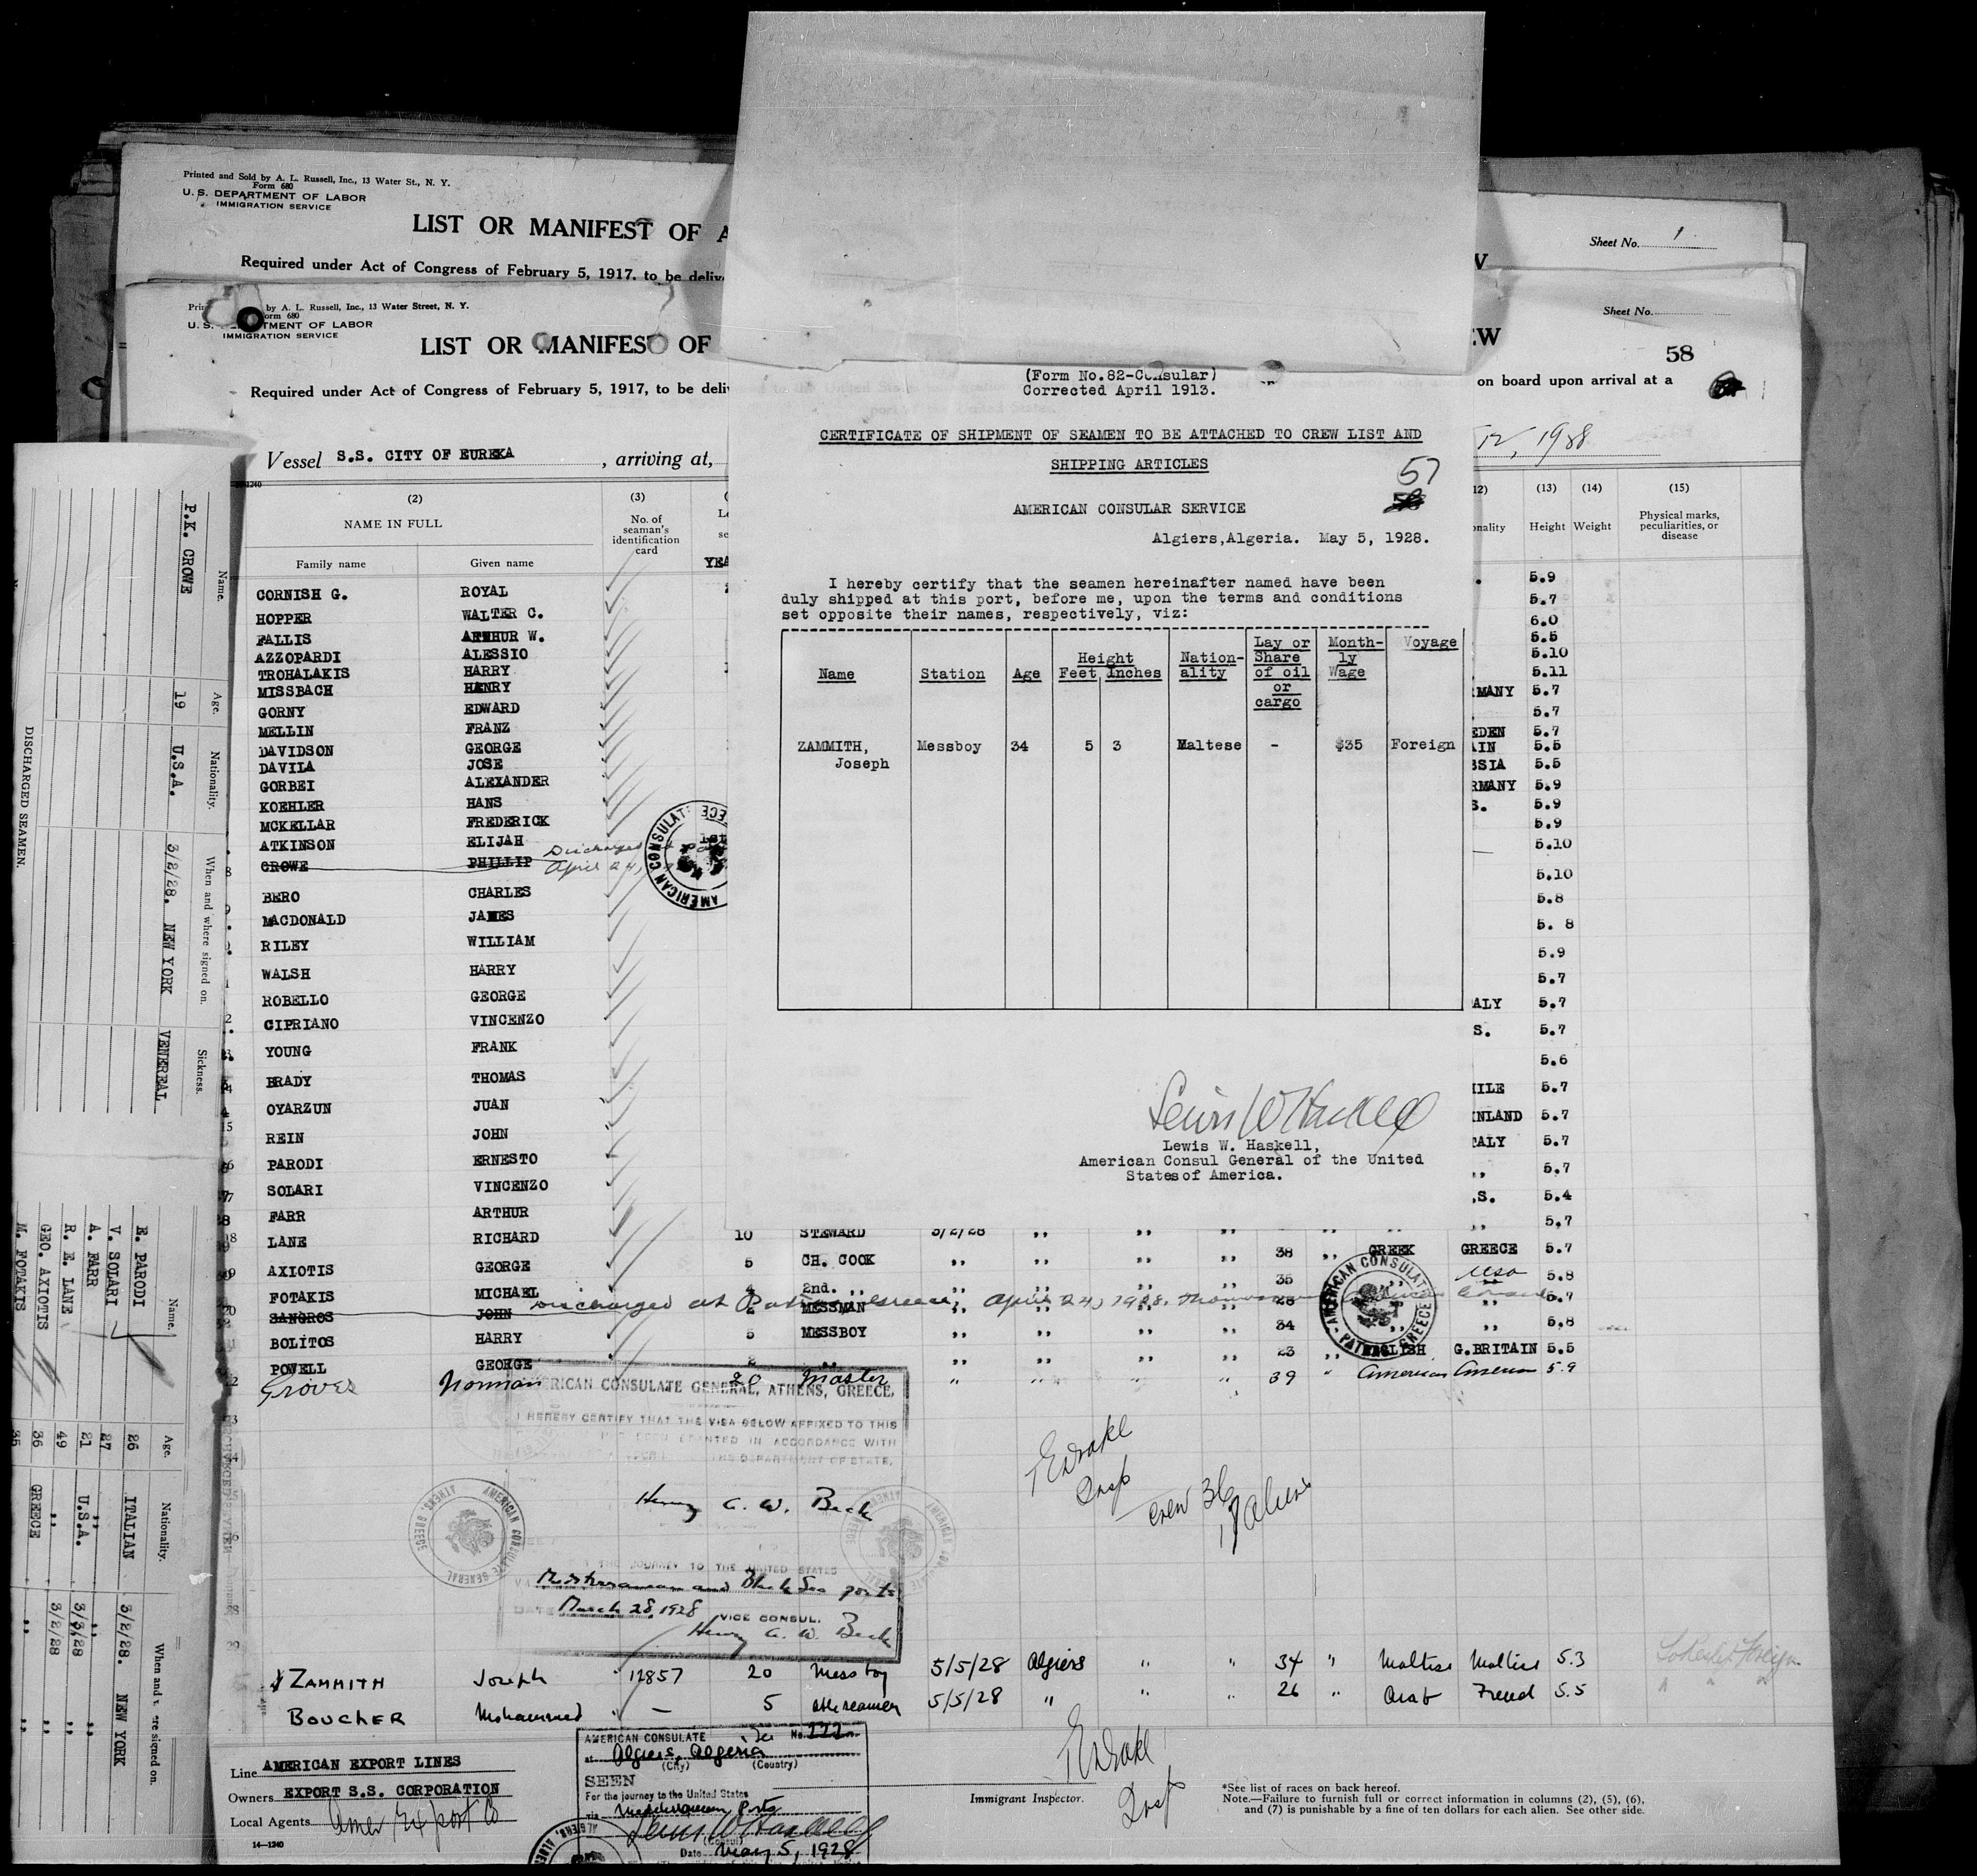 Printed and Sold by A. L. Russell, Inc., 13 Water St., N. Y.
Form 680
U. S. DEPARTMENT OF LABOR
IMMIGRATION SERVICE
LIST OR MANIFEST OF A
Required under Act of Congress of February 5, 1917, to be deliv
Sheet No. 1
by A. L. Russell, Inc., 13 Water Street, N. Y.
orm 680
U. S. TMENT OF LABOR
IMMIGRATION SERVICE
LIST OR MANIFEST OF
Required under Act of Congress of February 5, 1917, to be deli
Sheet No.
EW
58
on board upon arrival at a
Vessel S.S. CITY OF EUREKA, arriving at,
12, 1928
(2) (3) 12) (13) (14) (15)
NAME IN FULL No. of seaman's identification card nality Height Weight Physical marks, peculiarities, or disease
Family name Given name YEA
CORNISH G. ROYAL 5.9
HOPPER WALTER C. 5.7
FALLIS ARTHUR W. 6.0
AZZOPARDI ALESSIO 5.5
TROHALAKIS HARRY 5.10
MISSBACH HENRY 5.11
GORNY EDWARD RMANY 5.7
MELLIN FRANZ 5.7
DAVIDSON GEORGE EDEN 5.7
DAVILA JOSE AIN 5.5
GORBEI ALEXANDER SSIA 5.5
KOEHLER HANS RMANY 5.9
MCKELLAR FREDERICK S. 5.9
ATKINSON ELIJAH 5.9
CROWE PHILLIP Discharged April 24, 5.10
BERO CHARLES 5.10
MACDONALD JAMES 5.8
RILEY WILLIAM 5. 8
WALSH HARRY 5.9
ROBELLO GEORGE 5.7
CIPRIANO VINCENZO ALY 5.7
YOUNG FRANK S. 5.7
BRADY THOMAS 5.6
OYARZUN JUAN ILE 5.7
REIN JOHN NLAND 5.7
PARODI ERNESTO TALY 5.7
SOLARI VINCENZO ,, 5.7
FARR ARTHUR .S. 5.4
LANE RICHARD 10 STEWARD 3/2/28 ,, ,, ,, ,, ,, 5.7
AXIOTIS GEORGE 5 CH. COOK ,, ,, ,, ,, 38 ,, GREEK GREECE 5.7
FOTAKIS MICHAEL 4 2nd. ,, ,, ,, ,, ,, 35 USA 5.8
SANGROS JOHN discharged at Patras Greece, April 24, 1928. MESSMAN ,, 5.7
BOLITOS HARRY 5 MESSBOY ,, ,, ,, ,, 34 ,, ,, 5.8
POWELL GEORGE 2 ,, ,, ,, ,, ,, 23 ,, ENGLISH G.BRITAIN 5.5
Groves Norman 20 Master " " " " 39 " American 5.9
AMERICAN CONSULATE PATRAS GREECE
AMERICAN CONSULATE GENERAL, ATHENS, GREECE.
I HEREBY CERTIFY THAT THE VISA BELOW AFFIXED TO THIS
GRANTED IN ACCORDANCE WITH
THE DEPARTMENT OF STATE.
Henry A. W. Beck
AMERICAN CONSULATE GENERAL ATHENS, GREECE
THE JOURNEY TO THE UNITED STATES
Mediterranean and Black Sea ports
DATE March 28, 1928
VICE CONSUL.
Henry A. W. Beck
T E Drake
Insp
crew 36
ZAMMITH Joseph 12857 20 Messboy 5/5/28 Algiers " " 34 " Maltese Maltese 5.3
BOUCHER Mohammed — 5 5/5/28 " " " 26 " Arab French 5.5
Line AMERICAN EXPORT LINES
Owners EXPORT S.S. CORPORATION
Local Agents Amer Export Co
14—1240
AMERICAN CONSULATE No. 222
at Algiers, Algeria
(City) (Country)
SEEN
For the journey to the United States
via Mediterranean ports
Lewis W Haskell
(Consul)
Date May 5, 1928
T E Drake
Insp
Immigrant Inspector.
*See list of races on back hereof.
Note.—Failure to furnish full or correct information in columns (2), (5), (6),
and (7) is punishable by a fine of ten dollars for each alien. See other side.
(Form No.82-Consular)
Corrected April 1913.
CERTIFICATE OF SHIPMENT OF SEAMEN TO BE ATTACHED TO CREW LIST AND
SHIPPING ARTICLES
57
AMERICAN CONSULAR SERVICE
Algiers,Algeria. May 5, 1928.
I hereby certify that the seamen hereinafter named have been
duly shipped at this port, before me, upon the terms and conditions
set opposite their names, respectively, viz:
Name Station Age Height Feet Inches Nation-ality Lay or Share of oil or cargo Month-ly Wage Voyage
ZAMMITH, Messboy 34 5 3 Maltese - $35 Foreign
Joseph
Lewis W Haskell
Lewis W. Haskell,
American Consul General of the United
States of America.
DISCHARGED SEAMEN.
Name. Age. Nationality. When and where signed on. Sickness.
P.K. CROWE 19 U.S.A. 3/2/28. NEW YORK VENEREAL
Name. Age. Nationality. When and where signed on.
E. PARODI 26 ITALIAN 3/2/28. NEW YORK
V. SOLARI 27 ,, ,, ,,
A. FARR 21 U.S.A. 3/2/28 ,,
R. E. LANE 49 ,, 3/2/28 ,,
GEO. AXIOTIS 36 GREECE ,, ,,
M. FOTAKIS 35